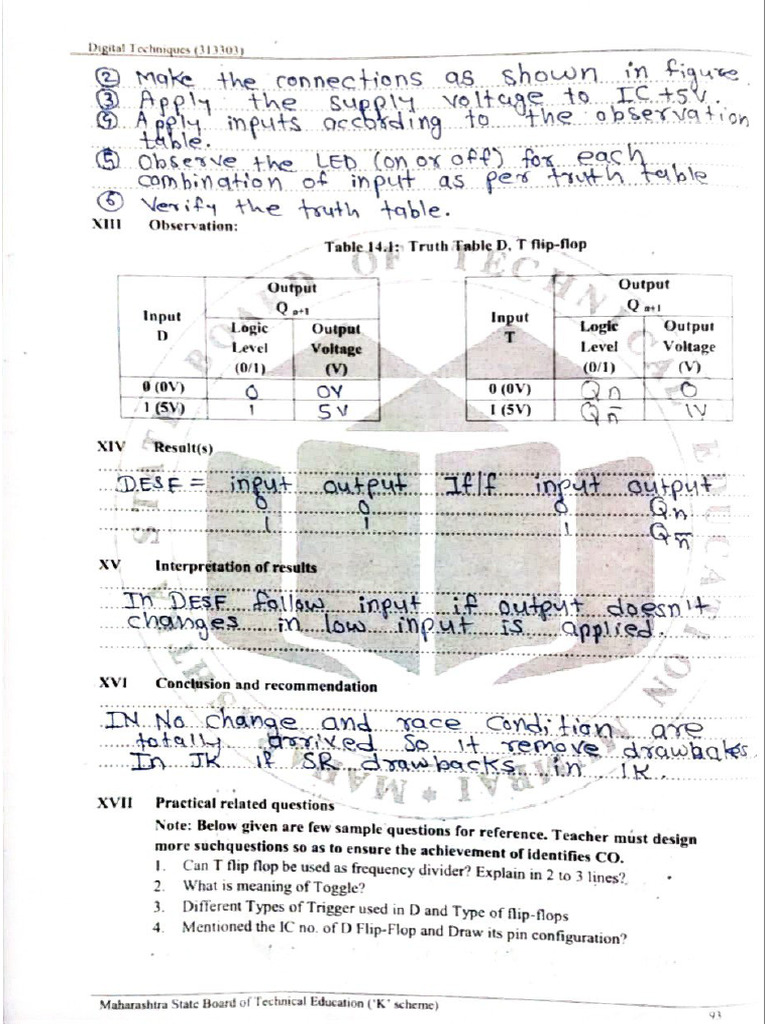 Digital Techniques (313303)
② Make the connections as shown in figure
③ Apply the supply voltage to IC +5V.
④ Apply inputs according to the observation
table.
⑤ Observe the LED (on or off) for each
combination of input as per truth table
⑥ Verify the truth table.
XIII Observation:
Table 14.1: Truth Table D, T flip-flop
Input D | Output Q n+1 | Input T | Output Q n+1
Logic Level (0/1) | Output Voltage (V) | Logic Level (0/1) | Output Voltage (V)
0 (0V) | 0 | 0V | 0 (0V) | Qn | 0
1 (5V) | 1 | 5V | 1 (5V) | Qn̅ | 1V
XIV Result(s)
DESF = input output If/f input output
0 0 0 Qn
1 1 1 Qn̅
XV Interpretation of results
In DESF follow input if output doesn't
changes in low input is applied.
XVI Conclusion and recommendation
IN No change and race condition are
totally arrived so it remove drawbakes
In JK if SR drawbacks in IK.
XVII Practical related questions
Note: Below given are few sample questions for reference. Teacher must design
more suchquestions so as to ensure the achievement of identifies CO.
1. Can T flip flop be used as frequency divider? Explain in 2 to 3 lines?
2. What is meaning of Toggle?
3. Different Types of Trigger used in D and Type of flip-flops
4. Mentioned the IC no. of D Flip-Flop and Draw its pin configuration?
Maharashtra State Board of Technical Education ('K' scheme)
93